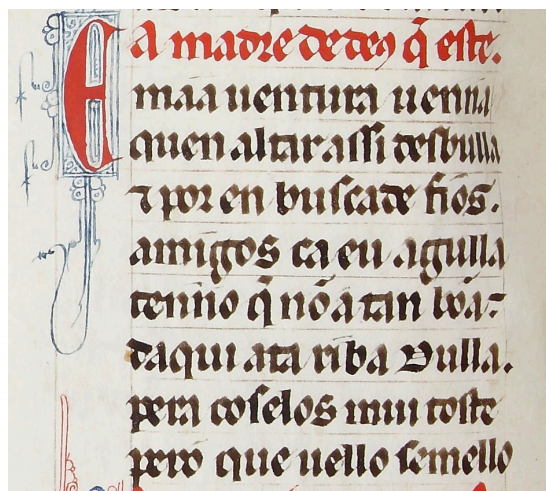 A madre de deus q̃ este.
E maa uentura uenna
quen altar assi desbulla
⁊ por en busca de fios.
amigos ca en agulla
tenno q̃ nõ a tan bõa
daqui ata riba dulla.
pera coselos mui toste
pero que uello semello